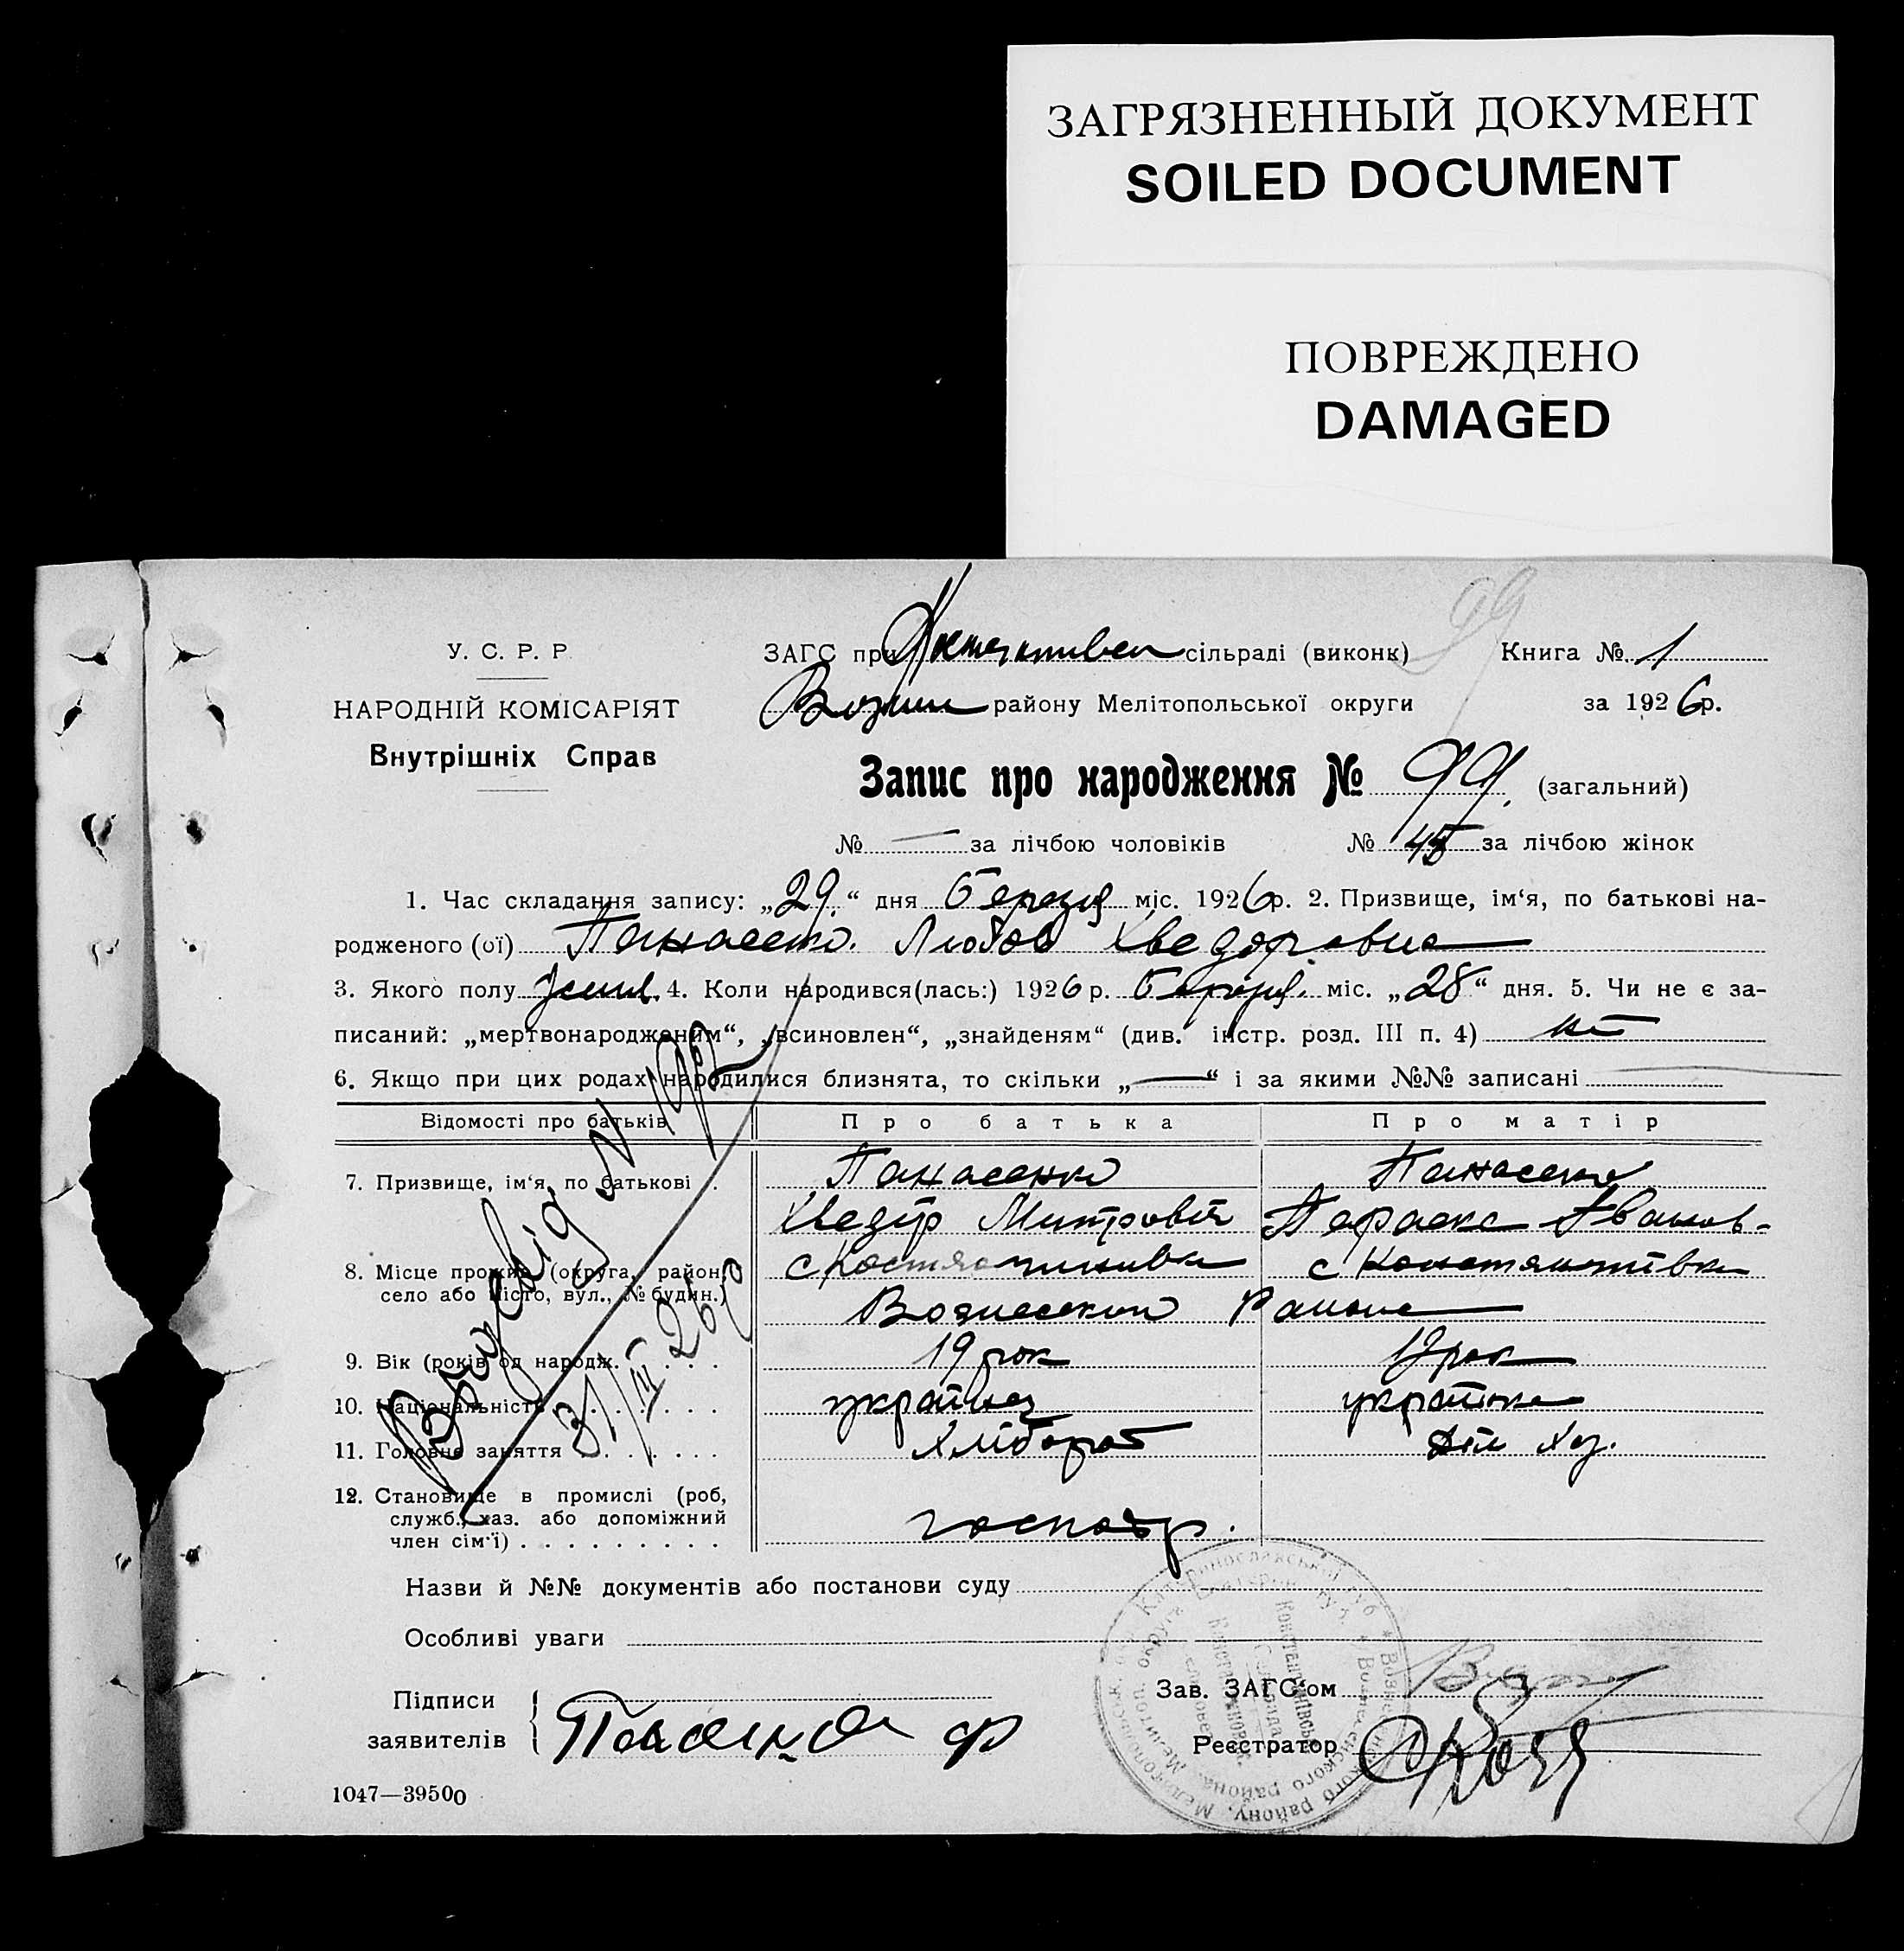 ЗАГРЯЗНЕННЫЙ ДОКУМЕНТ
SOILED DOCUMENT
ПОВРЕЖДЕНО
DAMAGED
99
У. С. Р. Р.
НАРОДНІЙ КОМІСАРІЯТ
Внутрішніх Справ
ЗАГС при сільраді (виконк) Книга № 1
району Мелітопольської округи за 1926р.
Запис про народження № 99. (загальний)
№ — за лічбою чоловіків № 45 за лічбою жінок
1. Час складання запису: „29.“ дня березня міс. 1926р. 2. Призвище, ім‘я, по батькові на-
родженого (ої) Панасенко Любов Хведоровна
3. Якого полу жіноч. 4. Коли народився(лась:) 1926 р. Березня міс. „28“ дня. 5. Чи не є за-
писаний: „мертвонародженим“, „всиновлен“, „знайденям“ (див. інстр. розд. III п. 4) ні
6. Якщо при цих родах народилися близнята, то скільки „—“ і за якими №№ записані
Відомості про батьків Про батька Про матір
7. Призвище, ім‘я, по батькові . Панасенко Панасенко
Хведір Митровіч Параска Іванов-
8. Місце прожив. (округа, район, с Костянтинівка с Констянтінівка
село або місто, вул., № будин.)
Вознесенкий Района
9. Вік (років од народж. . . . . 19 рок 19 рок
10. Національність . . . . . . . українец українка
11. Головне заняття . . . . . . . Хлібороб Дом Хоз.
12. Становище в промислі (роб,
служб., хаз. або допоміжний господр.
член сім‘ї) . . . . . . . . .
31/III 26р
Назви й №№ документів або постанови суду
Особливі уваги
Підписи
заявителів
Зав. ЗАГС‘ом
Реєстратор
1047—39500